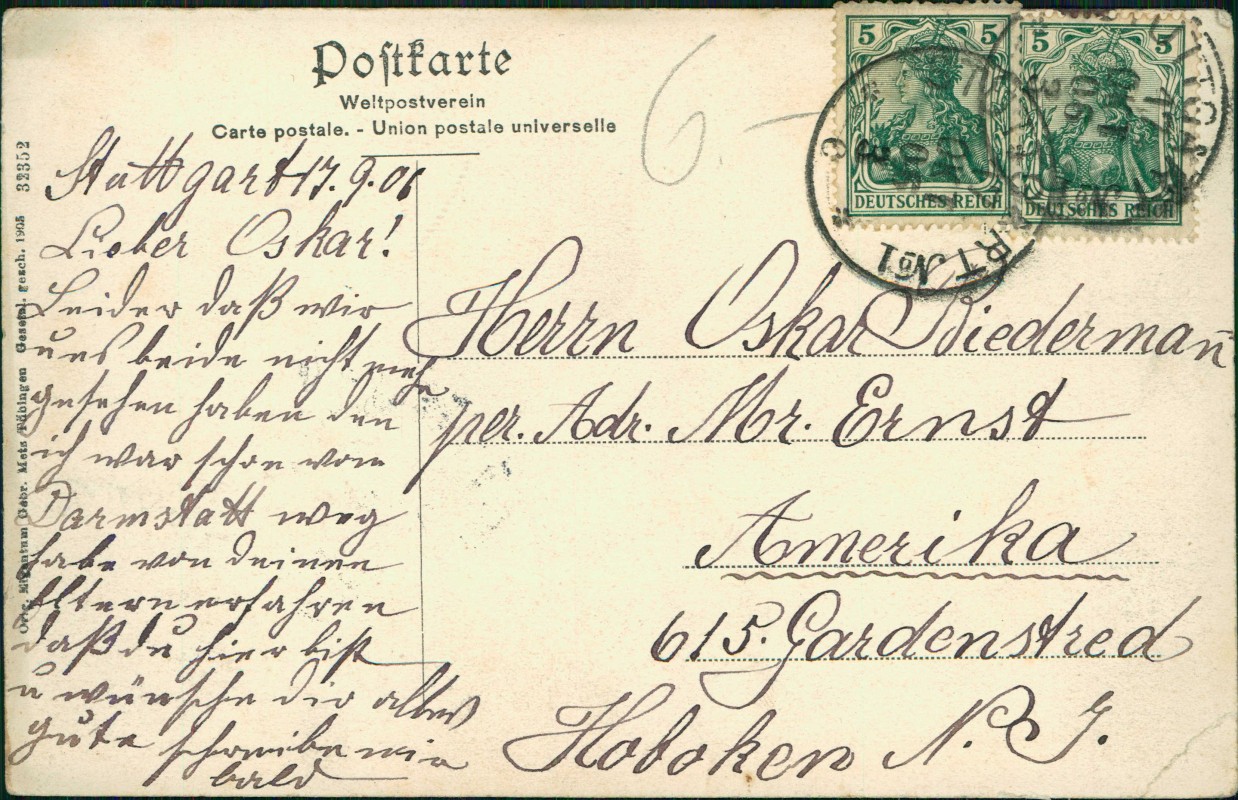 Postkarte
Weltpostverein
Carte postale. - Union postale universelle
6-
5 5
DEUTSCHES REICH
5 5
DEUTSCHES REICH
RT No 1
Orig. Eigentum Gebr. Metz Tübingen Gesetzl. gesch. 1905 32352
Stuttgart 17.9.06
Lieber Oskar!
Leider daß wir
uns beide nicht mehr
gesehen haben den
ich war schon vom
Darmstatt weg
habe von deinen
Eltern erfahren
daß du hier bist
u wünsche dir alles
gute schreibe mir
bald
Herrn Oskar Biedermañ
per. Adr. Mr. Ernst
Amerika
615. Gardenstred
Hoboken N. J.